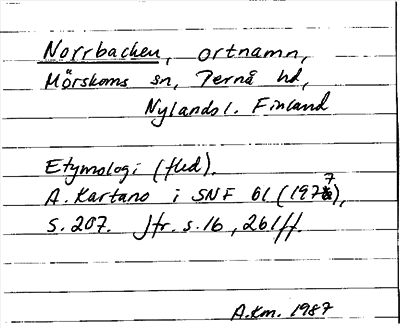 Norrbacken, ortnamn,
Mörskoms sn, Pernå hd,
Nylands l. Finland
Etymologi (fled).
A. Kartano i SNF 61 (1977),
s. 207. Jfr. s. 16, 261ff.
A.Km. 1987